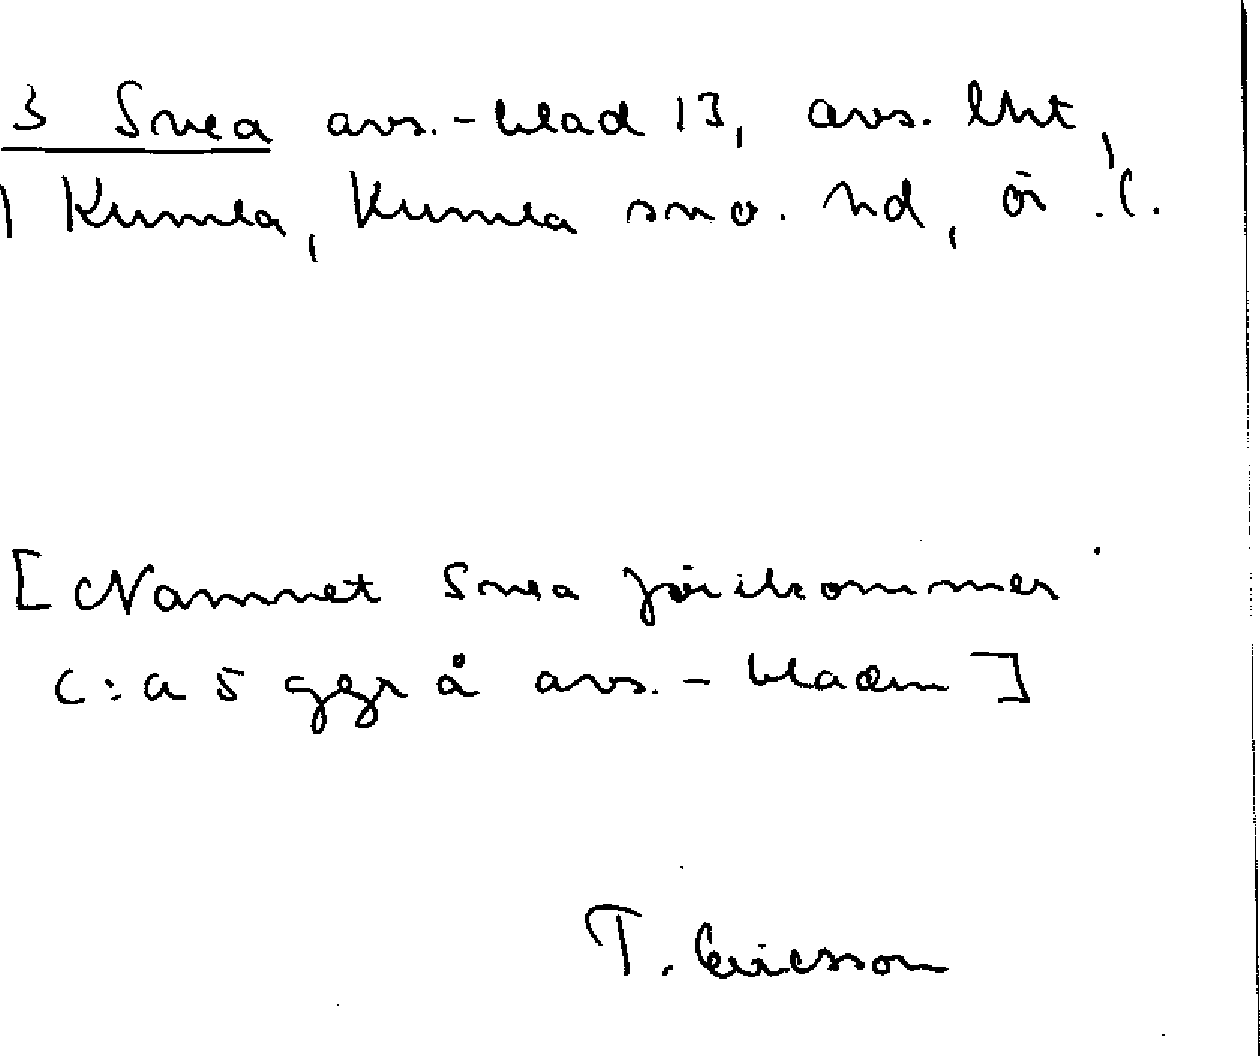 3 Snea avs.-blad 13, avs. Uht,
1 Kumla, Kumla sno. hd, ör. l.
[Namnet Snea förekommer
c:a 5 ggr å avs.-bladen]
T. Ericsson